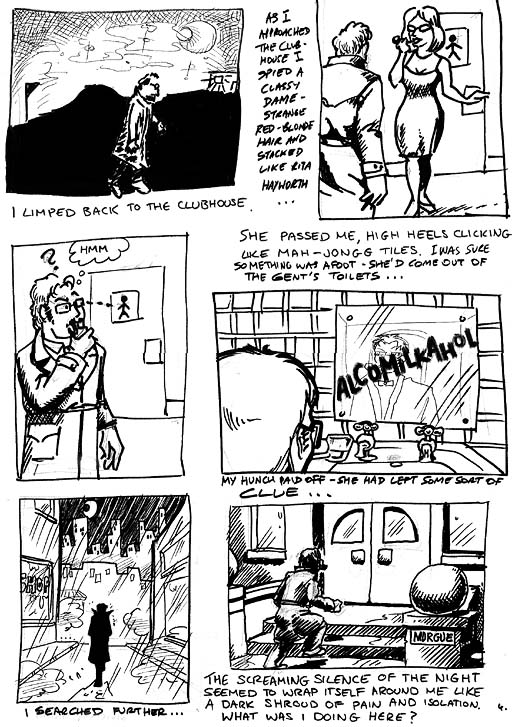 I LIMPED BACK TO THE CLUBHOUSE.
AS I
APROACHED
THE CLUB-
HOUSE I
SPIED A
CLASSY
DAME -
STRANGE
RED-BLONDE
HAIR AND
STACKED
LIKE RITA
HAYWORTH
...
SHE PASSED ME, HIGH HEELS CLICKING
LIKE MAH-JONGG TILES. I WAS SURE
SOMETHING WAS AFOOT - SHE'D COME OUT OF
THE GENT'S TOILETS...
?
?
HMM
ALCOMILKAHOL
MY HUNCH PAID OFF - SHE HAD LEFT SOME SORT OF
CLUE ...
SHOP
I SEARCHED FURTHER...
MORGUE
THE SCREAMING SILENCE OF THE NIGHT
SEEMED TO WRAP ITSELF AROUND ME LIKE
A DARK SHROUD OF PAIN AND ISOLATION.
WHAT WAS I DOING HERE?
4.